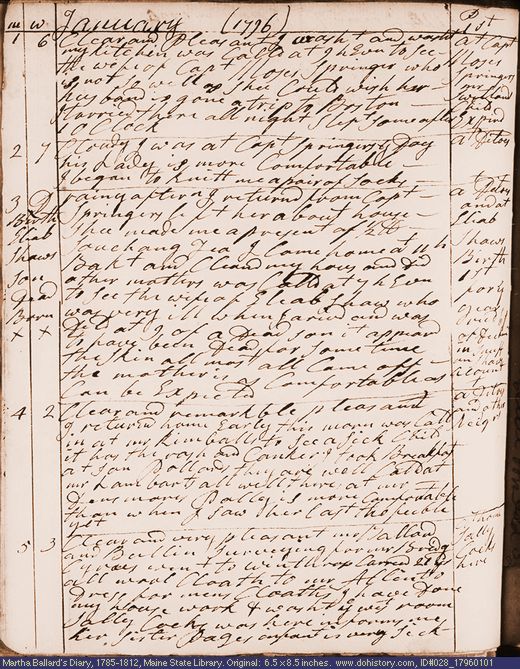 m w January (1796)
1 6 Clear and Pleasant. I washt and washt
my kitchen. was Calld at 7 h Evn to see
the wife of Capt Moses Springer who
is not so well as shee Could wish her
husband is gone a trip to Boston
I tarried there all night Slept some after
1 O Clock
at Capt
Moses
Springers
2 7 Cloudy. I was at Capt Springers. Day
his Lady is more Comfortable
I began to knitt me a pair of Socks
at Ditoy
3 D rain. after. I returnd from Capt
Springers left her about house
Shee made me a present of 2 lb
Souchang Tea. I Came home at 11 h
Bakt and Cleand my hous and did
other matters. was Calld at 7 h Evn
to See the wife of Eliab Shaw who
was very ill when I arivd and was
Dead Son it appeard
to have been Dead for some time
the Skin all Came off
the mother is as Comfortable as
Can be Expected
Birth
Eliab
Shaws
son
Dead
Born
X X
at Ditoy
and at
Eliab
Shaws
Birth
1st
4 2 Clear and remarkble pleasant
I returnd home Early this morn was Calld
in at mr Kimballs to See a Sick Child
it has the rash and Canker I took Breakfast
at Son Pollards they are well Calld at
mr Lambart all well there, at mr
Densmores Dolly is more Comfortable
than when I saw her last tho feeble
yet
5 3 Clear and very pleasant mr Ballard
and Surveying for mr
Cyrus went to winthrop Carried 22
all wool Cloath to mr Allen to
dress for mens Cloaths. I have done
my house work & washt my wst room
Sally Cocks was here informs me
her Sister Pages infant is very Sick
Sally
Cocks
here
Martha Ballard's Diary, 1785-1812, Maine State Library. Original: 6.5 x 8.5 inches. www.dohistory.org, ID#I028_17960101